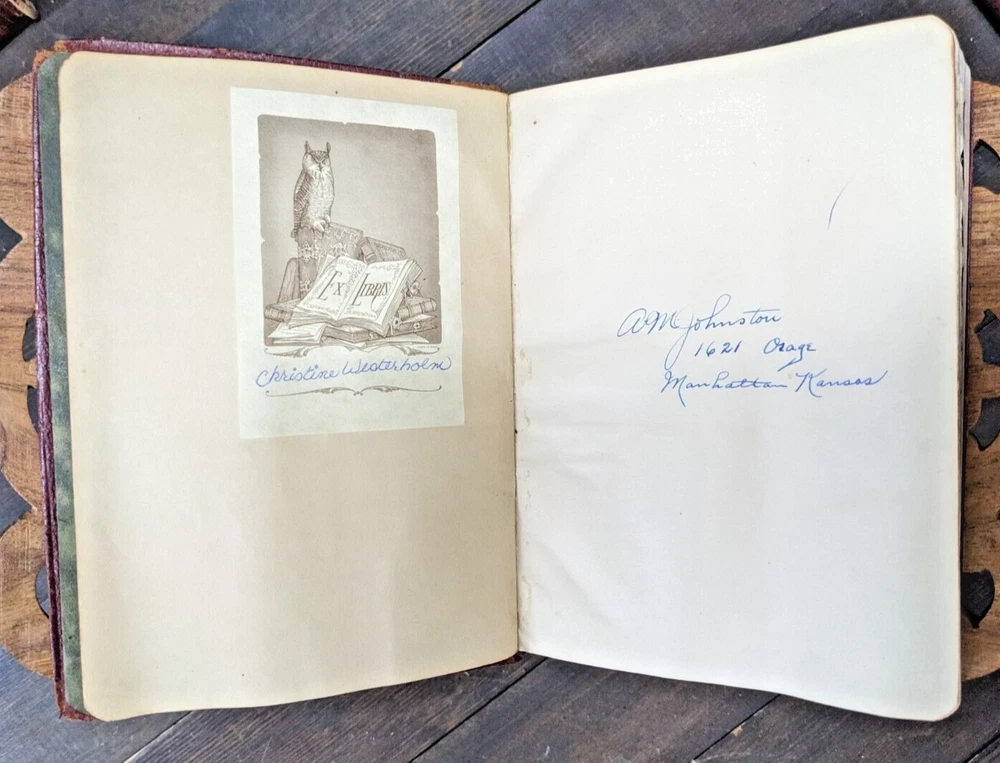 Ex Libris
Christine Westerholm
A M Johnston
1621 Osage
Manhattan Kansas